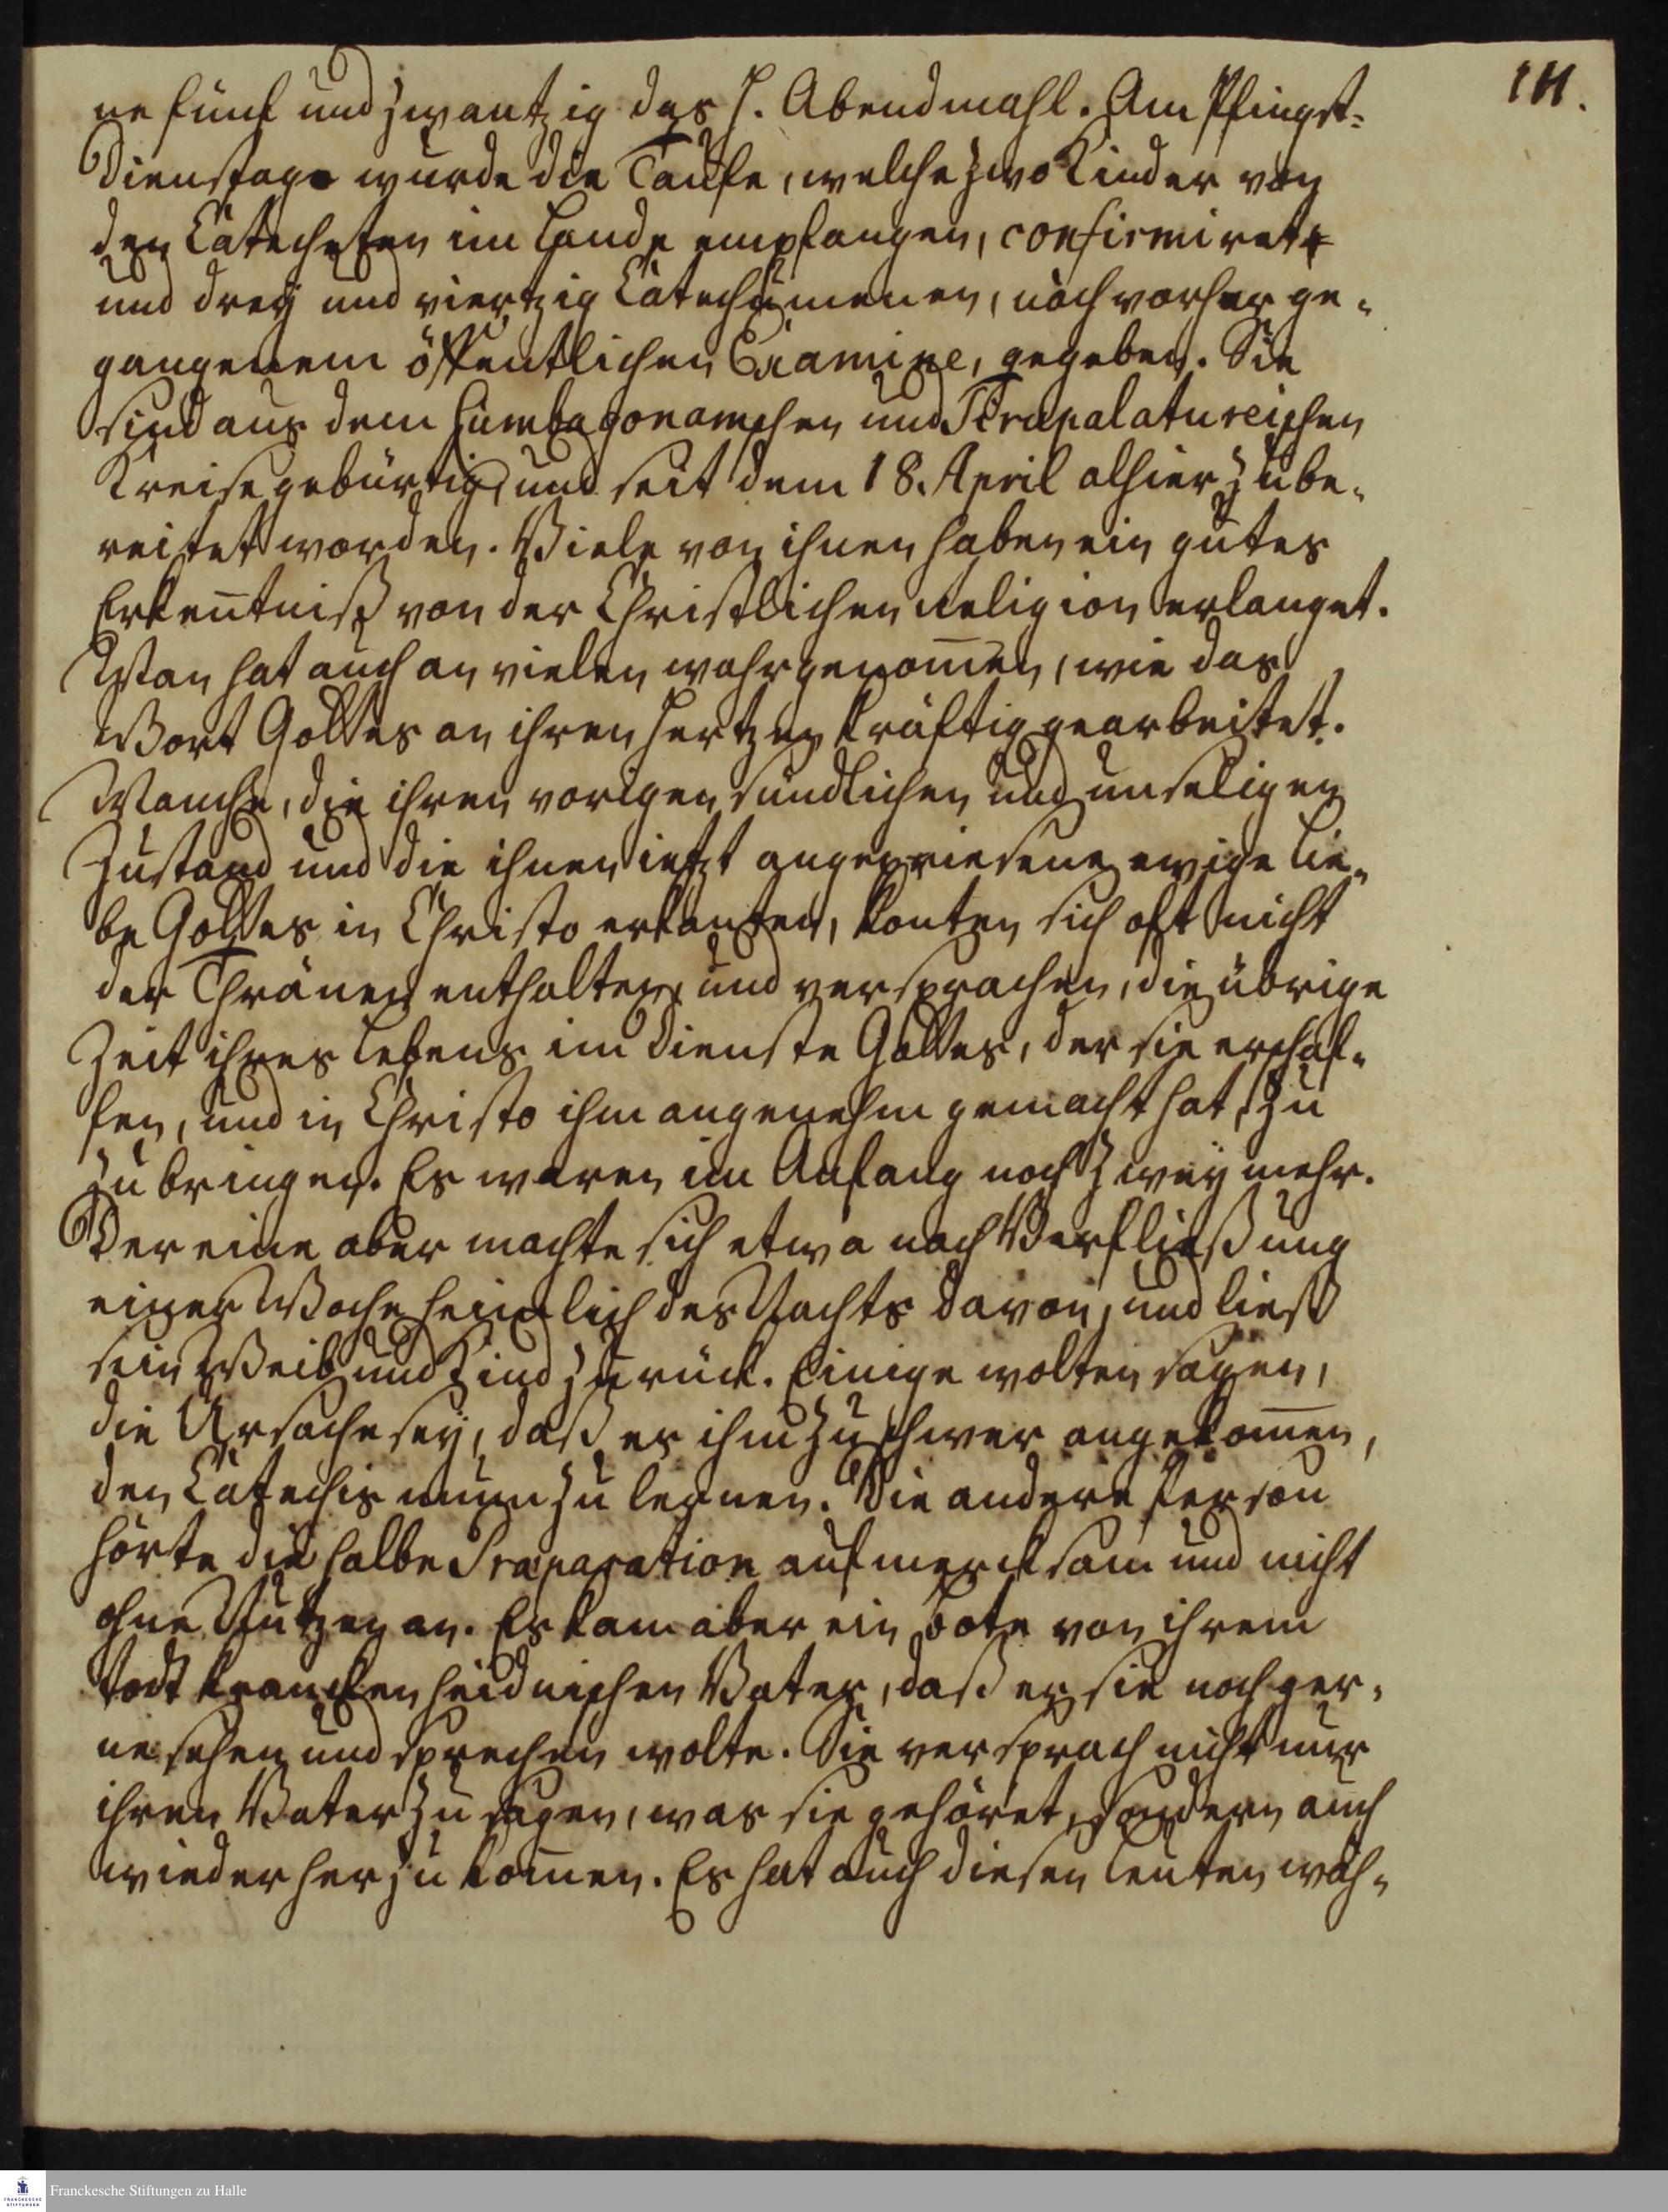 111.
ne fünf und zwantzig das H. Abendmahl. Am Pfingst-
Dienstage wurde die Taufe, welche zwo Kinder von
den Catecheten im Lande empfangen, confirmiret
und drey und viertzig Catechumenen, nach vorherge-
gangenem öffentlichen Examine, gegeben. Sie
sind aus dem Cumbagonamschen und Tirupalatureischen
Kreise gebürtig, und seit dem 18. April alhier zube-
reitet worden. Viele von ihnen haben ein gutes
Erkentniß von der Christlichen Religion erlanget.
Man hat auch an vielen wahrgenom̅en, wie das
Wort Gottes an ihren Hertzen kräftig gearbeitet.
Manche, die ihren vorigen sündlichen und unseligen
Zustand und die ihnen ietzt angepriesene ewige Lie-
be Gottes in Christo erkanten, konten sich oft nicht
der Thränen enthalten, und versprachen, die übrige
Zeit ihres Lebens im Dienste Gottes, der sie erschaf-
fen, und in Christo ihm angenehm gemacht hat, zu
zubringen. Es waren im Anfang noch zwey mehr.
Der eine aber machte sich etwa nach Verfließung
einer Woche heimlich des Nachts davon, und ließ
sein Weib und Kind zurück. Einige wolten sagen,
die Ursache sey, daß es ihm zu schwer angekom̅en,
den Catechismum zu lernen. Die andere Person
hörte die halbe Praeparation aufmercksam und nicht
ohne Nutzen an. Es kam aber ein Bote von ihrem
todt krancken heidnischen Vater, daß er sie noch ger-
ne sehen und sprechen wolte. Sie versprach nicht nur
ihren Vater zu sagen, was sie gehöret, sondern auch
wieder herzukom̅en. Es hat auch diesen Leuten wäh-
Franckesche Stiftungen zu Halle
FRANCKESCHE
STIFTUNGEN